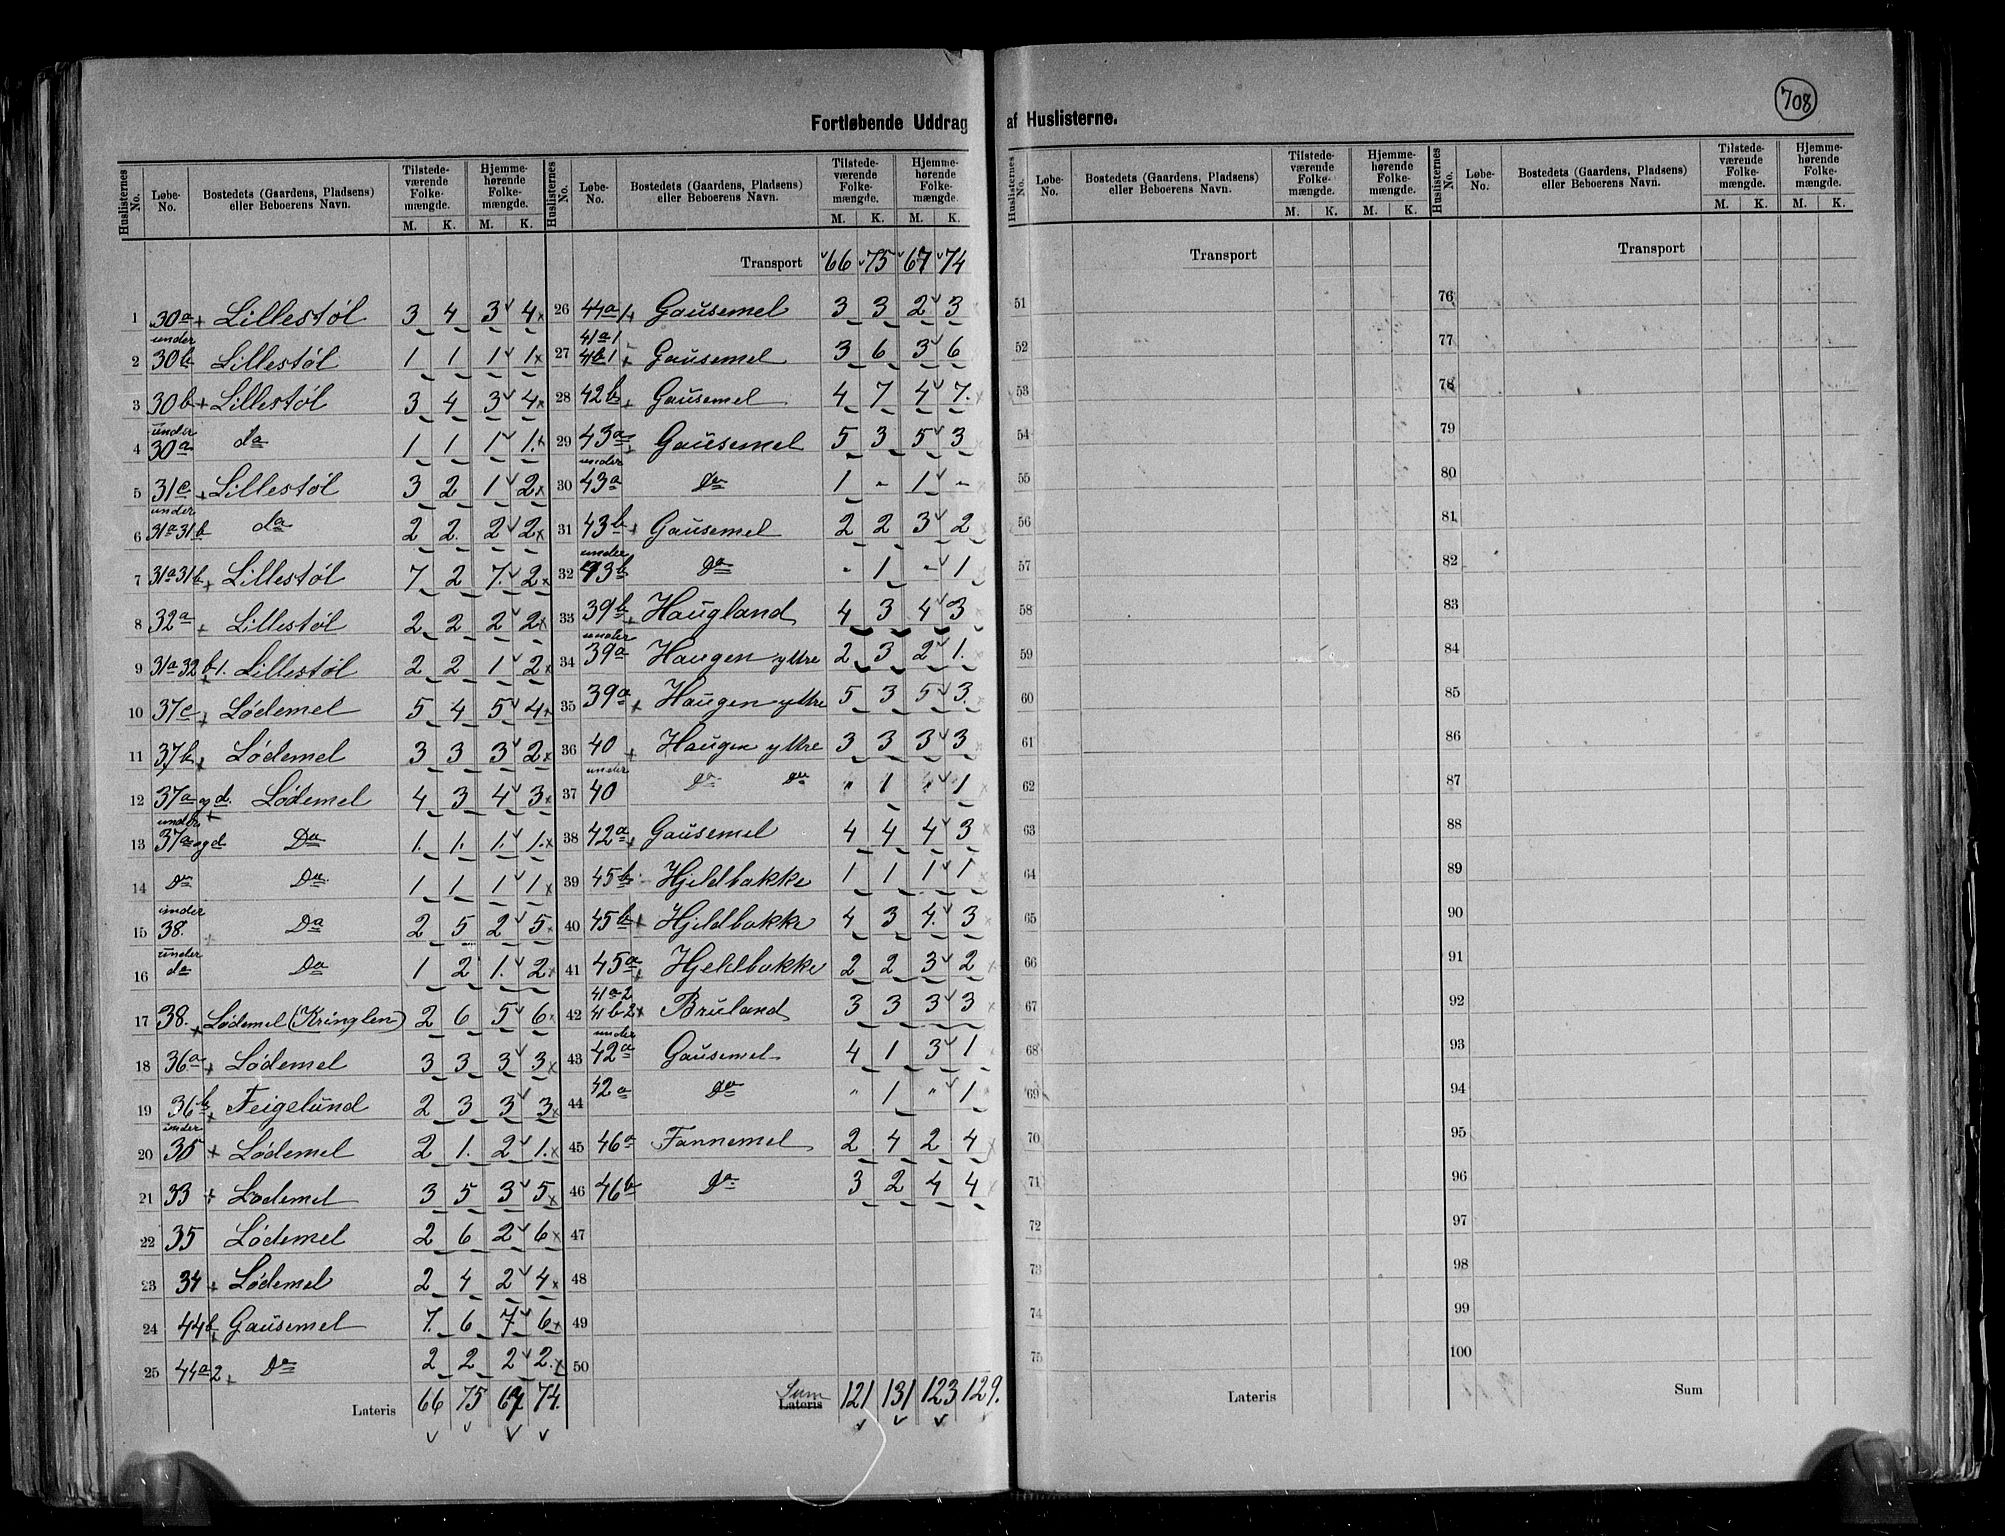 708
Fortløbende Uddrag af Huslisternes.
Huslisternes No. Løbe-No. Bostedets (Gaardens, Pladsens) eller Beboerens Navn. Tilstedeværende Folkemængde. Hjemmehørende Folkemængde.
M. K. M. K.
1 30a + Lillestøl 3 4 3 4
2 under 30b Lillestøl 1 1 1 1
3 30b + Lillestøl 3 4 3 4
4 under 30a da 1 1 1 1
5 31c + Lillestøl 3 2 1 2
6 under 31a 31b da 2 2 2 2
7 31a 31b + Lillestøl 7 2 7 2
8 32a + Lillestøl 2 2 2 2
9 31a 32b1. + Lillestøl 2 2 1 2
10 37c + Lødemel 5 4 5 4
11 37b + Lødemel 3 3 3 2
12 37a og d. + Lødemel 4 3 4 3
13 under 37a og d Da 1 1 1 1
14 Da Da 1 1 1 1
15 under 38. Da 2 5 2 5
16 under da Da 1 2 1 2
17 38. + Lødemel (Kringlen) 2 6 5 6
18 36a + Lødemel 3 3 3 3
19 36b + Feigelund 2 3 3 3
20 under 35 + Lødemel 2 1 2 1
21 33 + Lødemel 3 5 3 5
22 35 Lødemel 2 6 2 6
23 34 + Lødemel 2 4 2 4
24 44b + Gausemel 7 6 7 6
25 44a2 + Da 2 2 2 2
Lateris 66 75 67 74.
Huslisternes No. Løbe-No. Bostedets (Gaardens, Pladsens) eller Beboerens Navn. Tilstedeværende Folkemængde. Hjemmehørende Folkemængde.
M. K. M. K.
Transport 66 75 67 74
26 44a1 + Gausemel 3 3 2 3
27 41a1 41b1 + Gausemel 3 6 3 6
28 42b + Gausemel 4 7 4 7
29 43a + Gausemel 5 3 5 3
30 under 43a Da 1 - 1 -
31 43b + Gausemel 2 2 3 2
32 under 43b Da - 1 - 1
33 39b + Haugland 4 3 4 3
34 under 39a Haugen yttre 2 3 2 1
35 39a + Haugen yttre 5 3 5 3
36 40 + Haugen yttre 3 3 3 3
37 under 40 Da Da " 1 " 1
38 42a + Gausemel 4 4 4 3
39 45b - Hjeldbakke 1 1 1 1
40 45b + Hjeldbakke 4 3 4 3
41 45a + Hjeldbakke 2 2 3 2
42 41a2 41b2 + Bruland 3 3 3 3
43 under 42a Gausemel 4 1 3 1
44 42a Da " 1 " 1
45 46a Fannemel 2 4 2 4
46 46b Da 3 2 4 4
47
48
49
50
Sum Lateris 121 131 123 129.
Huslisternes No. Løbe-No. Bostedets (Gaardens, Pladsens) eller Beboerens Navn. Tilstedeværende Folkemængde. Hjemmehørende Folkemængde.
M. K. M. K.
Transport
51
52
53
54
55
56
57
58
59
60
61
62
63
64
65
66
67
68
69
70
71
72
73
74
75
Lateris
Huslisternes No. Løbe-No. Bostedets (Gaardens, Pladsens) eller Beboerens Navn. Tilstedeværende Folkemængde. Hjemmehørende Folkemængde.
M. K. M. K.
Transport
76
77
78
79
80
81
82
83
84
85
86
87
88
89
90
91
92
93
94
95
96
97
98
99
100
Sum